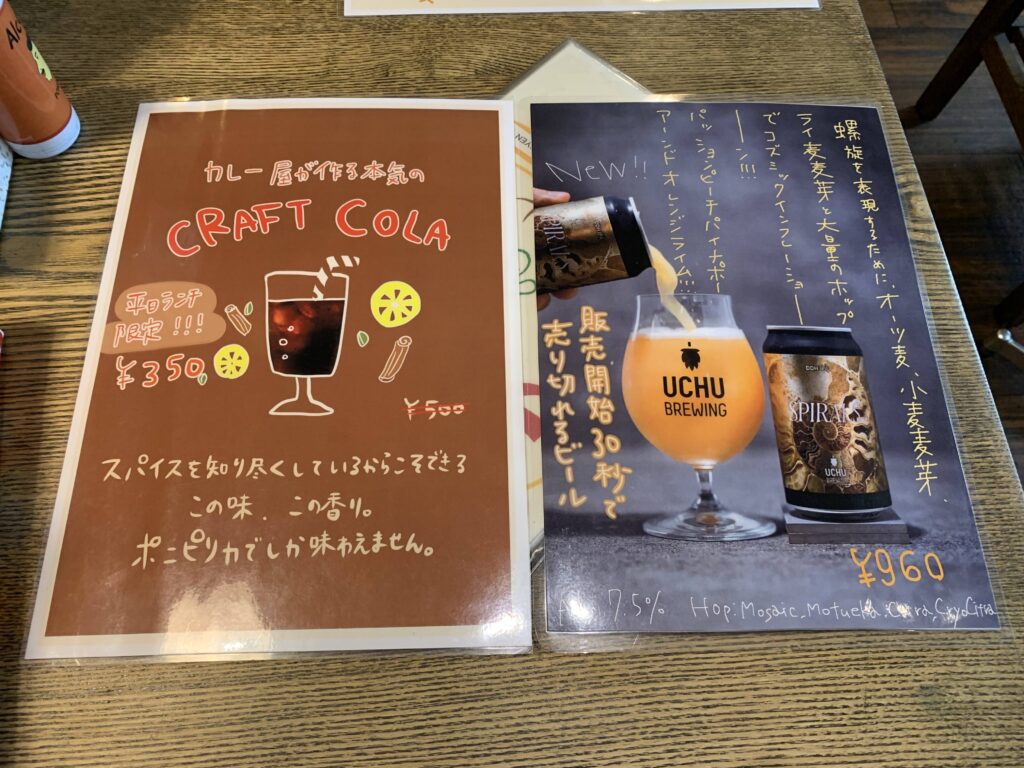 カレー屋が作る本気の
CRAFT COLA
平日ランチ
限定!!!
¥350
¥500
スパイスを知り尽くしているからこそできる
この味、この香り。
ポニピリカでしか味わえません。
螺旋を表現するために、オーツ麦、小麦麦芽、
ライ麦麦芽と大量のホップ
でコズミックインフレーショ
ーン!!!
パッションピーチパイナポー
アーンドオレンジライム!!!
New!!
販売開始30秒で
売り切れるビール
SPIRALS
UCHU
BREWING
DDH
SPIRALS
UCHU
BREWING
¥960
7.5% Hop:Mosaic,Motueka,Citra,CryoCitra